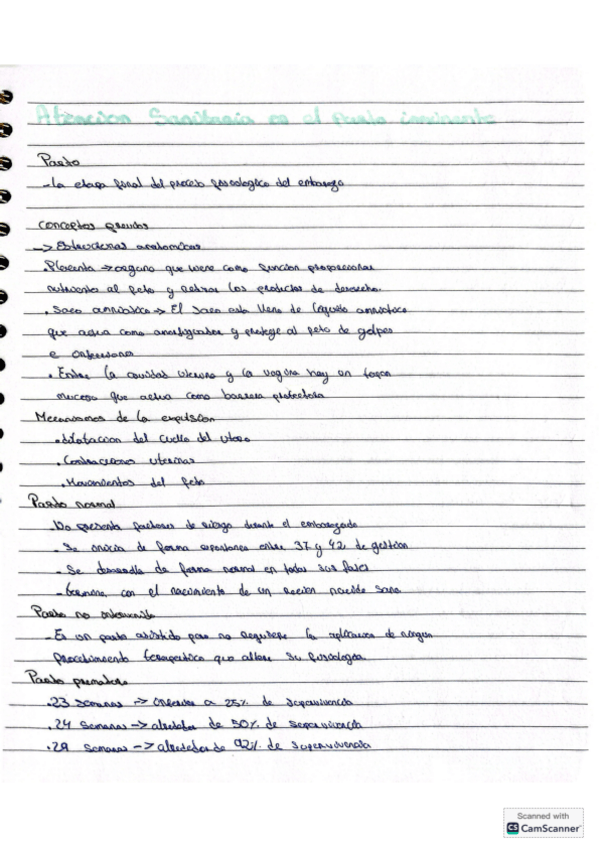 Atencion Sanitaria en el parto inminente
Parto
- La etapa final del proceso fisiologico del embarazo
Conceptos previos
-> Estructuras anatomicas
• Placenta -> organo que tiene como función proporcionar
nutrientes al feto y retirar los productos de desecho.
• Saco amniótico -> El saco esta lleno de liquido amniotico
que actua como amortiguador y protege al feto de golpes
e infecciones
• Entre la cavidad uterina y la vagina hay un tapon
mucoso que actua como barrera protectora
Mecanismos de la expulsion
• dilatacion del cuello del utero
• Contracciones uterinas
• Movimientos del feto
Parto normal
- No presenta factores de riesgo durante el embarazo
- Se inicia de forma espontanea entre 37 y 42 de gestion
- Se desarrolla de forma normal en todas sus fases
- termina con el nacimiento de un recien nacido sano
Parto no intervenido
- Es un parto asistido pero no requiere la aplicacion de ningun
procedimiento terapeutico que altere su fisiologia
Parto prematuro
• 23 semanas -> inferior a 25% de supervivencia
• 24 semanas -> alrededor de 50% de supervivencia
• 29 semanas -> alrededor de 92% de supervivencia
Scanned with
CS CamScanner